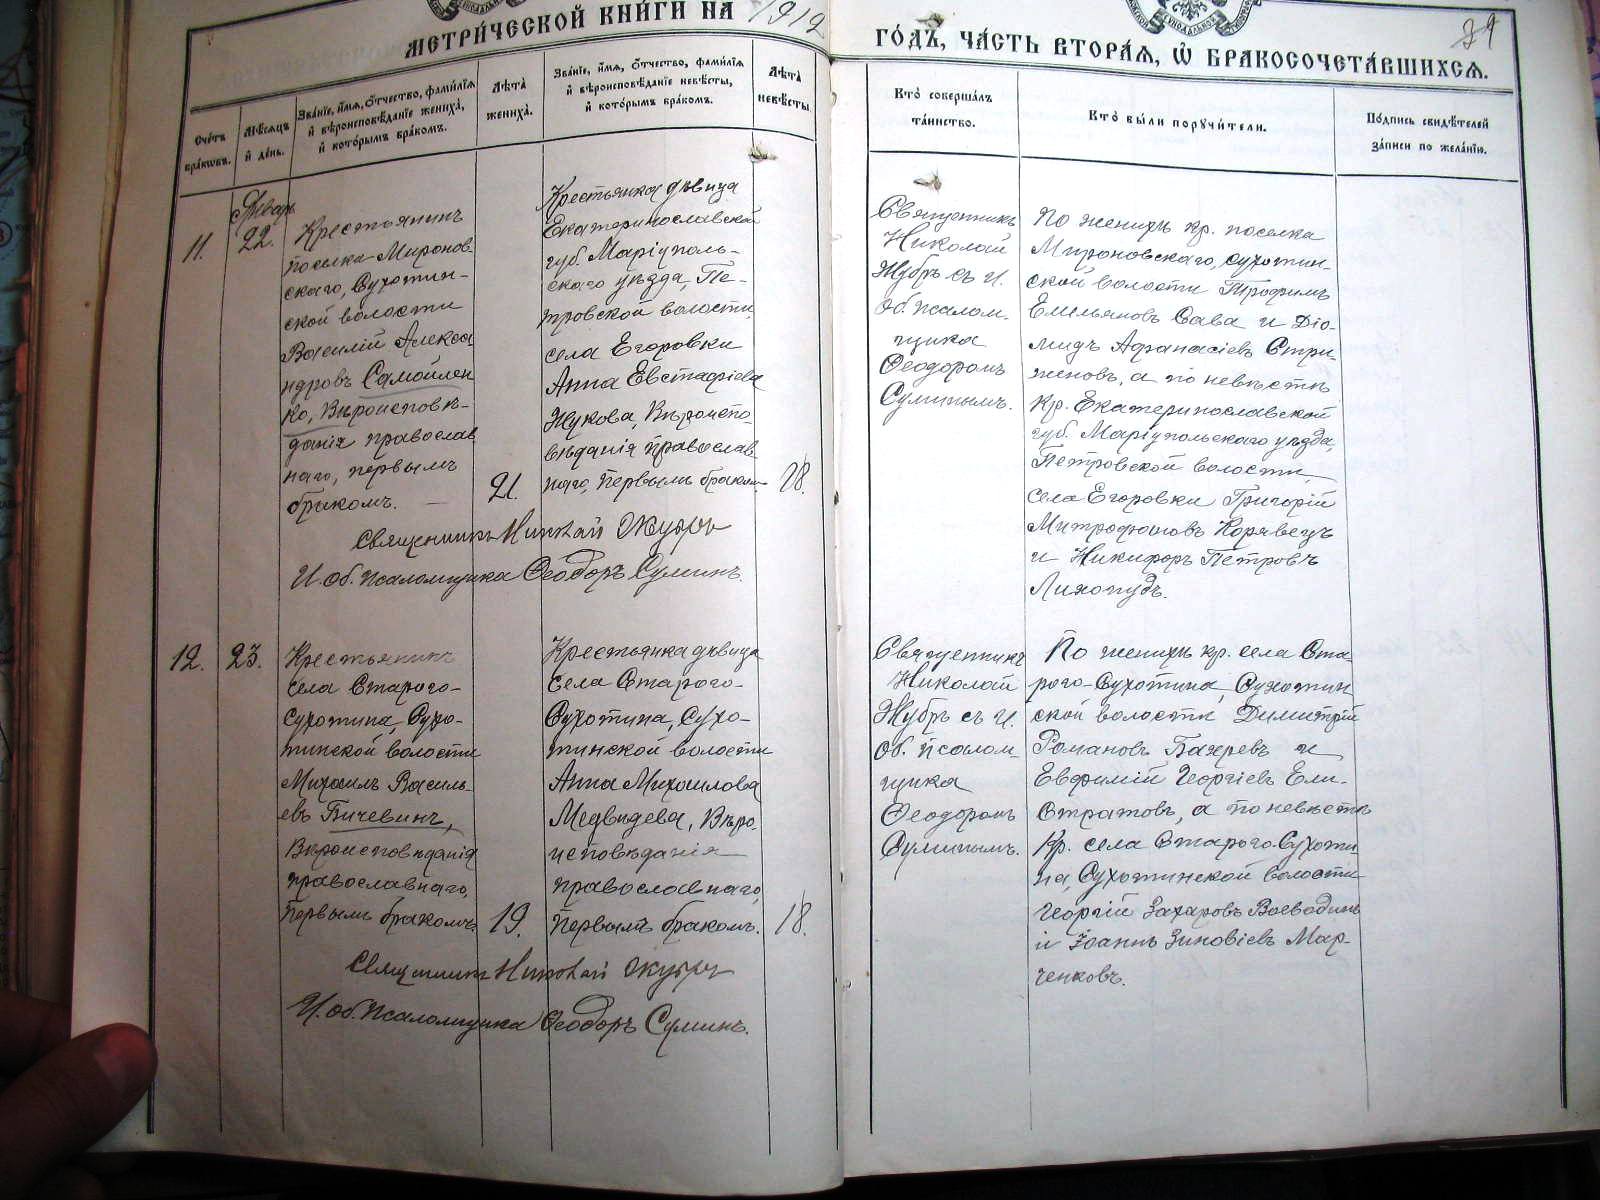 МЕТРИ́ЧЕСКОЙ КНИ́ГИ НА 1912
ГО́ДЪ, ЧА́СТЬ ВТОРА́Я, Ѡ БРАКОСОЧЕТА́ВШИХСЯ.
Сче́тъ
бра́ковъ.
Мѣ́сяцъ
и де́нь.
Зва́нїе, и́мя, о́тчество, фами́лїя
и вѣроисповѣ́данїе жениха̀,
и кото́рымъ бра́комъ.
Лѣта̀
жениха̀.
Зва́нїе, и́мя, о́тчество, фами́лїя
и вѣроисповѣ́данїе невѣ́сты,
и кото́рымъ бра́комъ.
Лѣта̀
невѣ́сты.
Кто̀ соверша́лъ
та́инство.
Кто̀ бы́ли поручи́тели.
По́дпись свидѣ́телей
за́писи по жела́нїю.
11.
Январь
22.
Крестьянинъ
поселка Миронов-
скаго, Сухотин-
ской волости
Василій Алекса
ндровъ Самойлен
ко, Вѣроисповѣ-
данія православ
наго, первымъ
бракомъ.
21.
Крестьянка дѣвица
Екатеринославской
губ. Маріуполь-
скаго уѣзда, Пе-
тровской волости,
села Егоровки
Анна Евстафіева
Жукова, Вѣроиспо-
вѣданія православ
наго, первымъ браком
18.
Священникъ
Николай
Жубръ съ И.
об. псалом-
щика
Ѳеодоромъ
Суминымъ.
По женихѣ кр. поселка
Мироновскаго, Сухотин-
ской волости Трофимъ
Емельяновъ Сава и Діо-
мидъ Афанасіевъ Стри-
женовъ, а по невѣстѣ
Кр. Екатеринославской
губ. Маріупольскаго уѣзда,
Петровской волости,
села Егоровки Григорій
Митрофановъ Коравецъ
и Никифоръ Петровъ
Лихопудъ.
Священникъ Николай Жубръ
И. об. псаломщика Ѳеодоръ Суминъ.
12.
23.
Крестьянинъ
села Старого-
Сухотина, Сухо-
тинской волости
Михаилъ Василь-
евъ Бичевинъ,
Вѣроисповѣданія
православнаго,
первымъ бракомъ.
19.
Крестьянка дѣвица
села Старого-
Сухотина, Сухо-
тинской волости
Анна Михаилова
Медвѣдева, Вѣро-
исповѣданія
православнаго,
первымъ бракомъ.
18.
Священникъ
Николай
Жубръ съ И.
об. псалом-
щика
Ѳеодоромъ
Суминымъ.
По женихѣ кр. села Ста-
рого-Сухотина, Сухотин
ской волости Димитрій
Романовъ Бахревъ и
Евфимій Георгіевъ Ели-
стратовъ, а по невѣстѣ
Кр. села Старого Сухоти
на, Сухотинской волости
Георгій Захаровъ Воеводинъ
и Іоаннъ Зиновіевъ Мар-
ченковъ.
Священникъ Николай Жубръ
И. об. псаломщика Ѳеодоръ Суминъ.